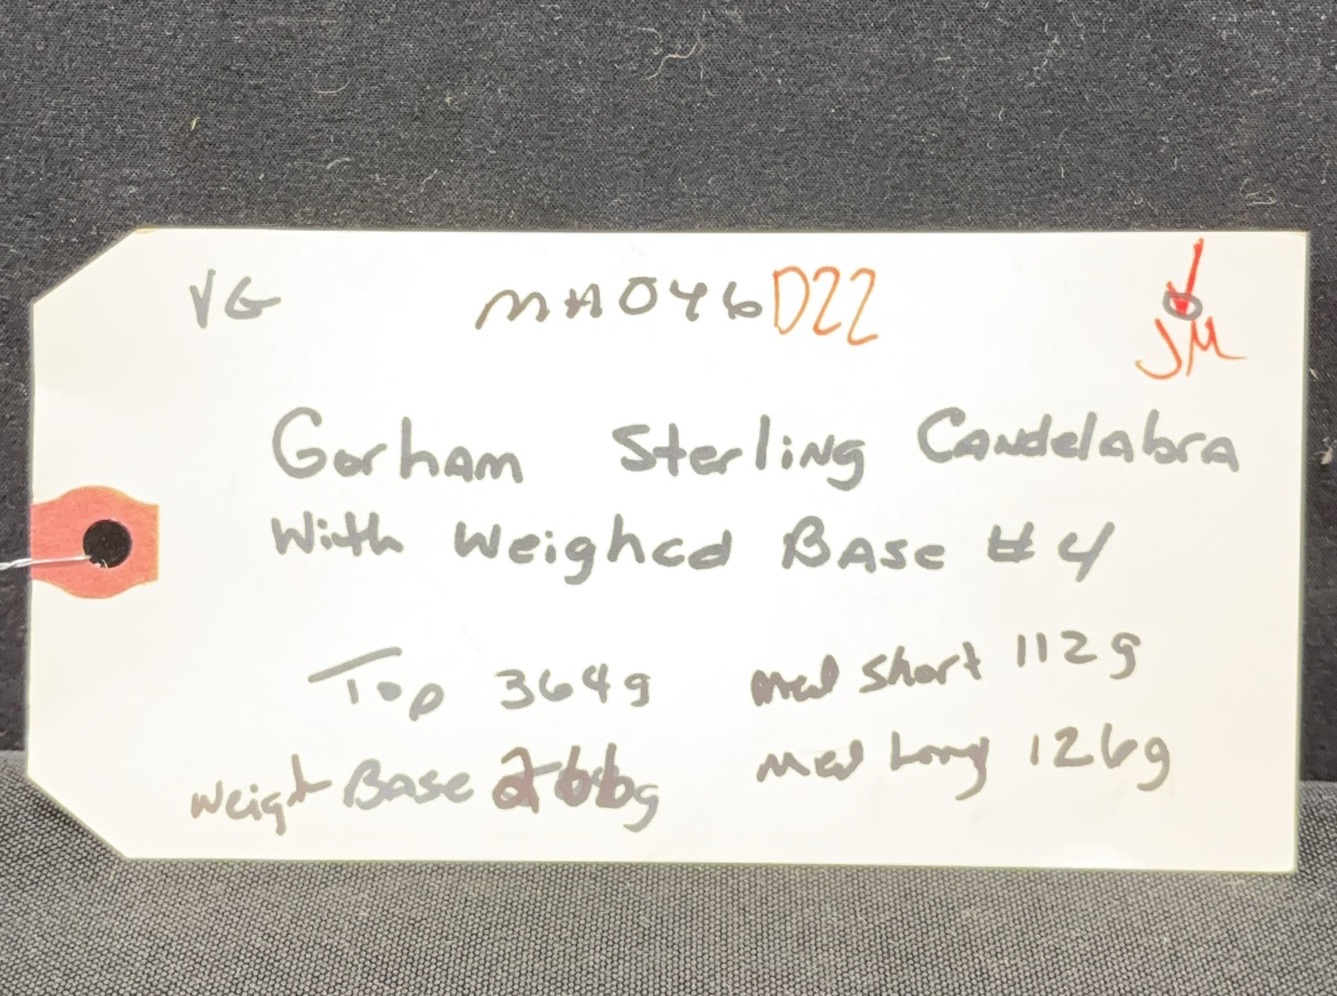 VG MA046D22
JM
Gorham Sterling Candelabra
With Weighed Base #4
Top 364g med short 112g
Weight Base 266g med Long 126g